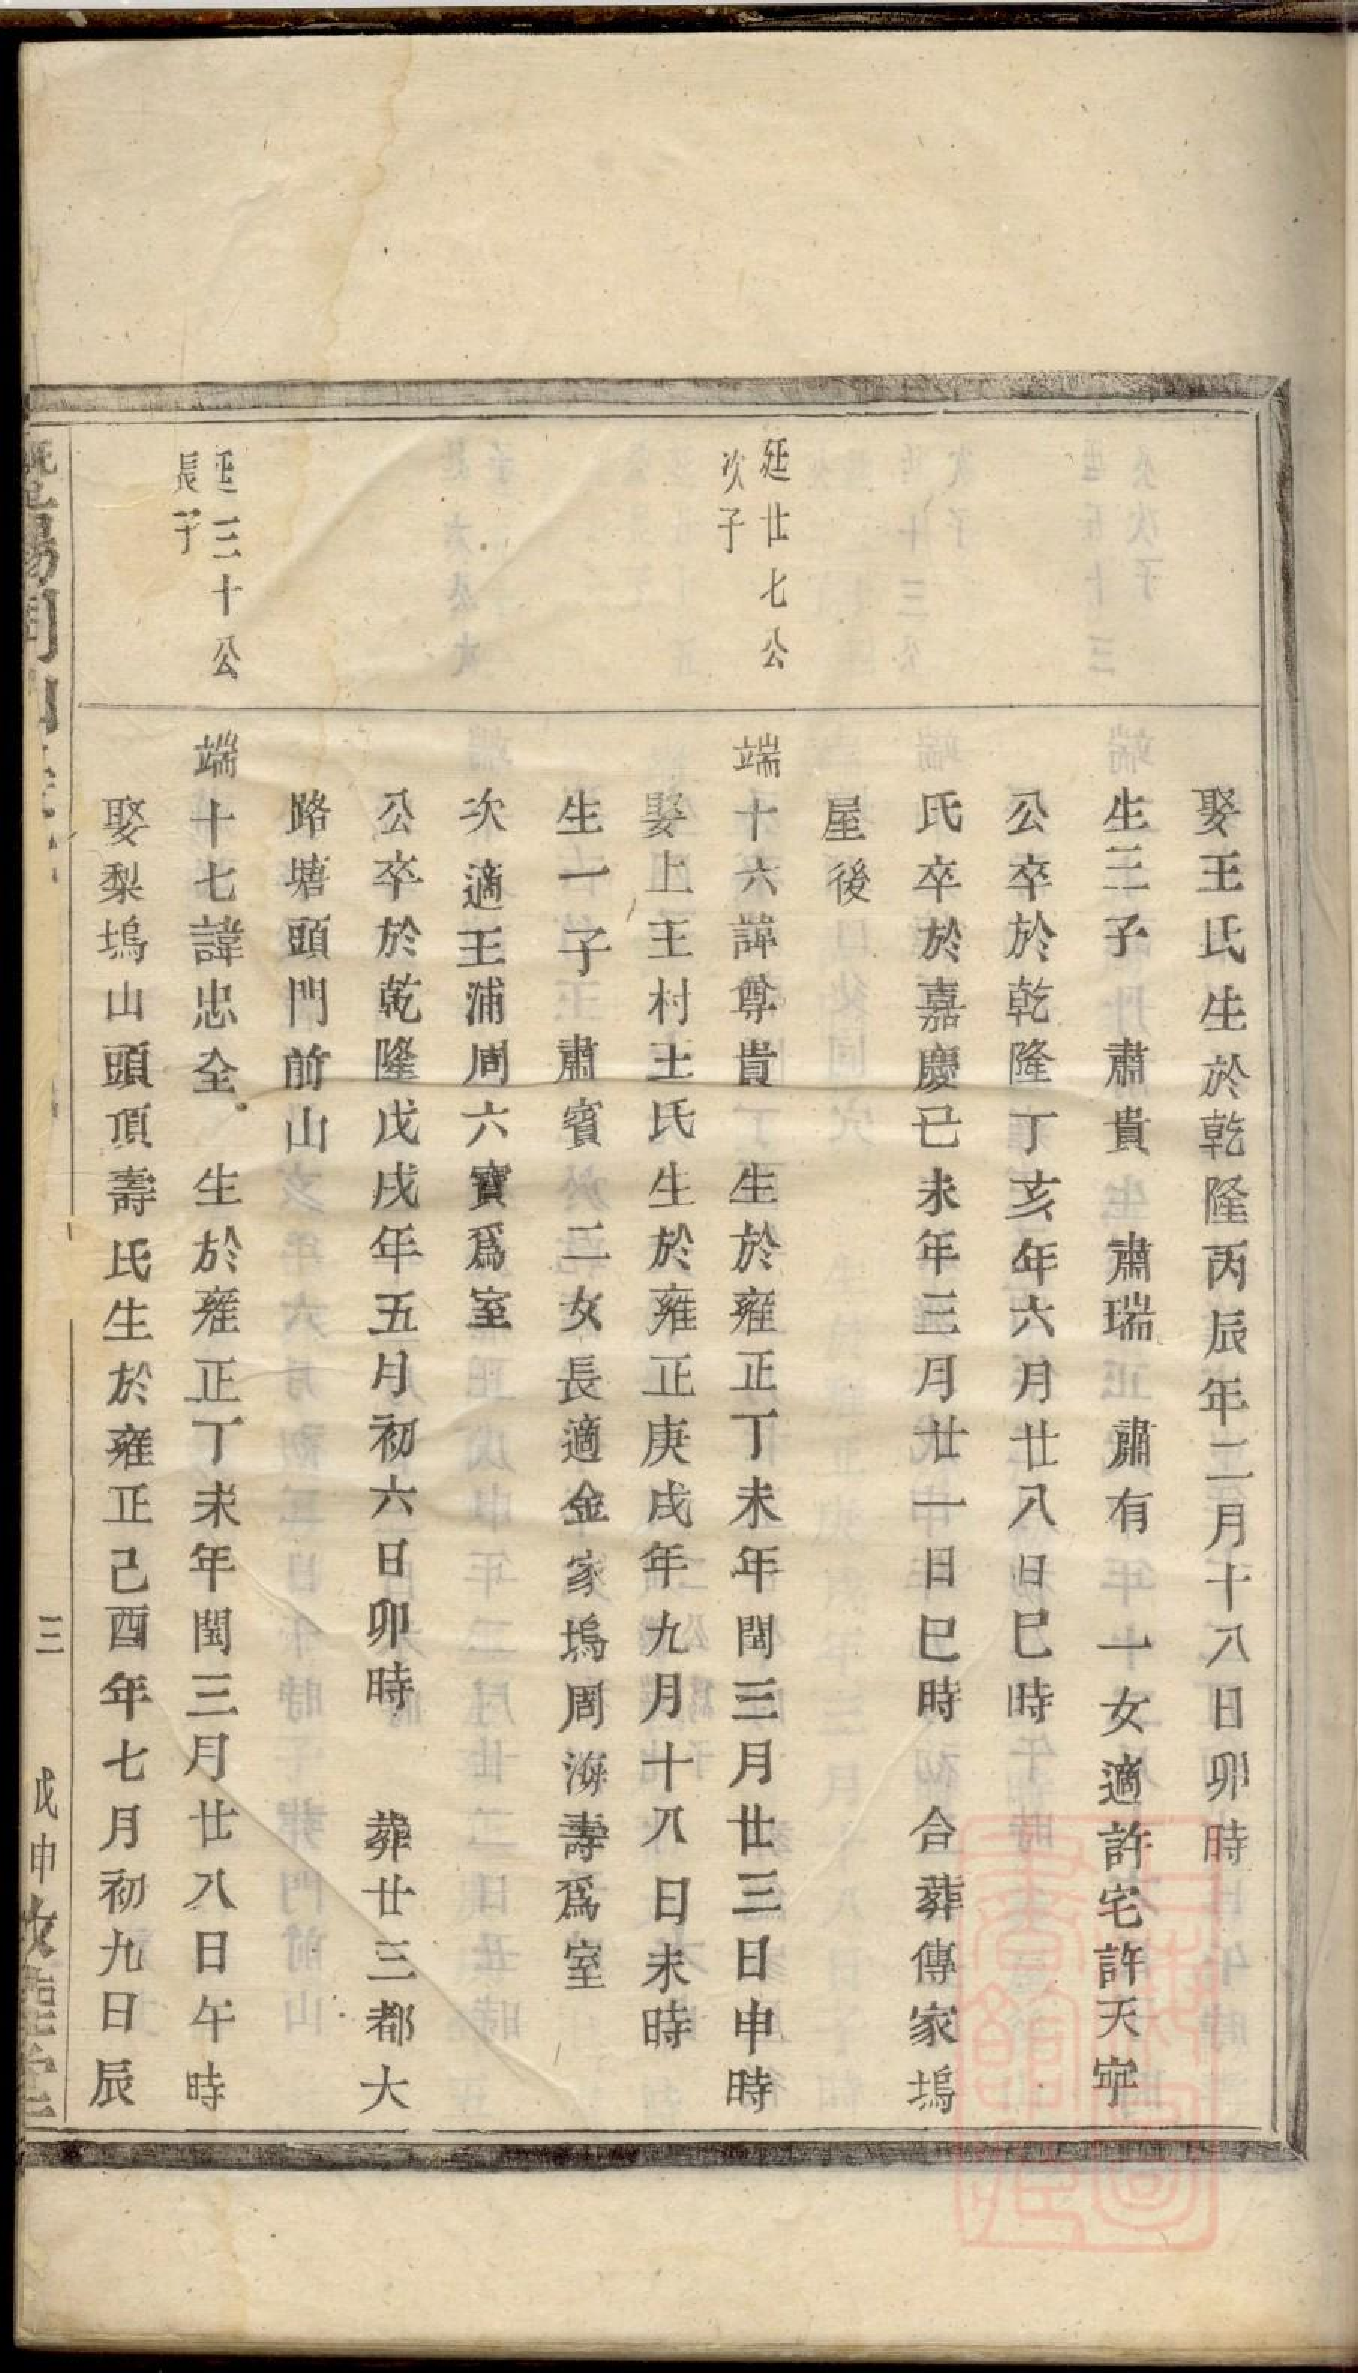 娶王氏生於乾隆丙辰年二月十八日卯時
生三子　肅貴　肅瑞　肅有　一女適許宅許天寧
公卒於乾隆丁亥年六月廿八日巳時
氏卒於嘉慶己未年三月廿一日巳時　合葬傳家塢
屋後
廷廿七公
次子
端十六諱尊貴　生於雍正丁未年閏三月廿三日申時
娶上王村王氏生於雍正庚戌年九月十八日未時
生一子　肅賓　二女長適金家塢周海壽爲室
次適王浦周六寶爲室
公卒於乾隆戊戌年五月初六日卯時　葬廿三都大
路塘頭門前山
廷三十公
長子
端十七諱忠全　生於雍正丁未年閏三月廿八日午時
娶梨塢山頭頂壽氏生於雍正己酉年七月初九日辰
三　戊申